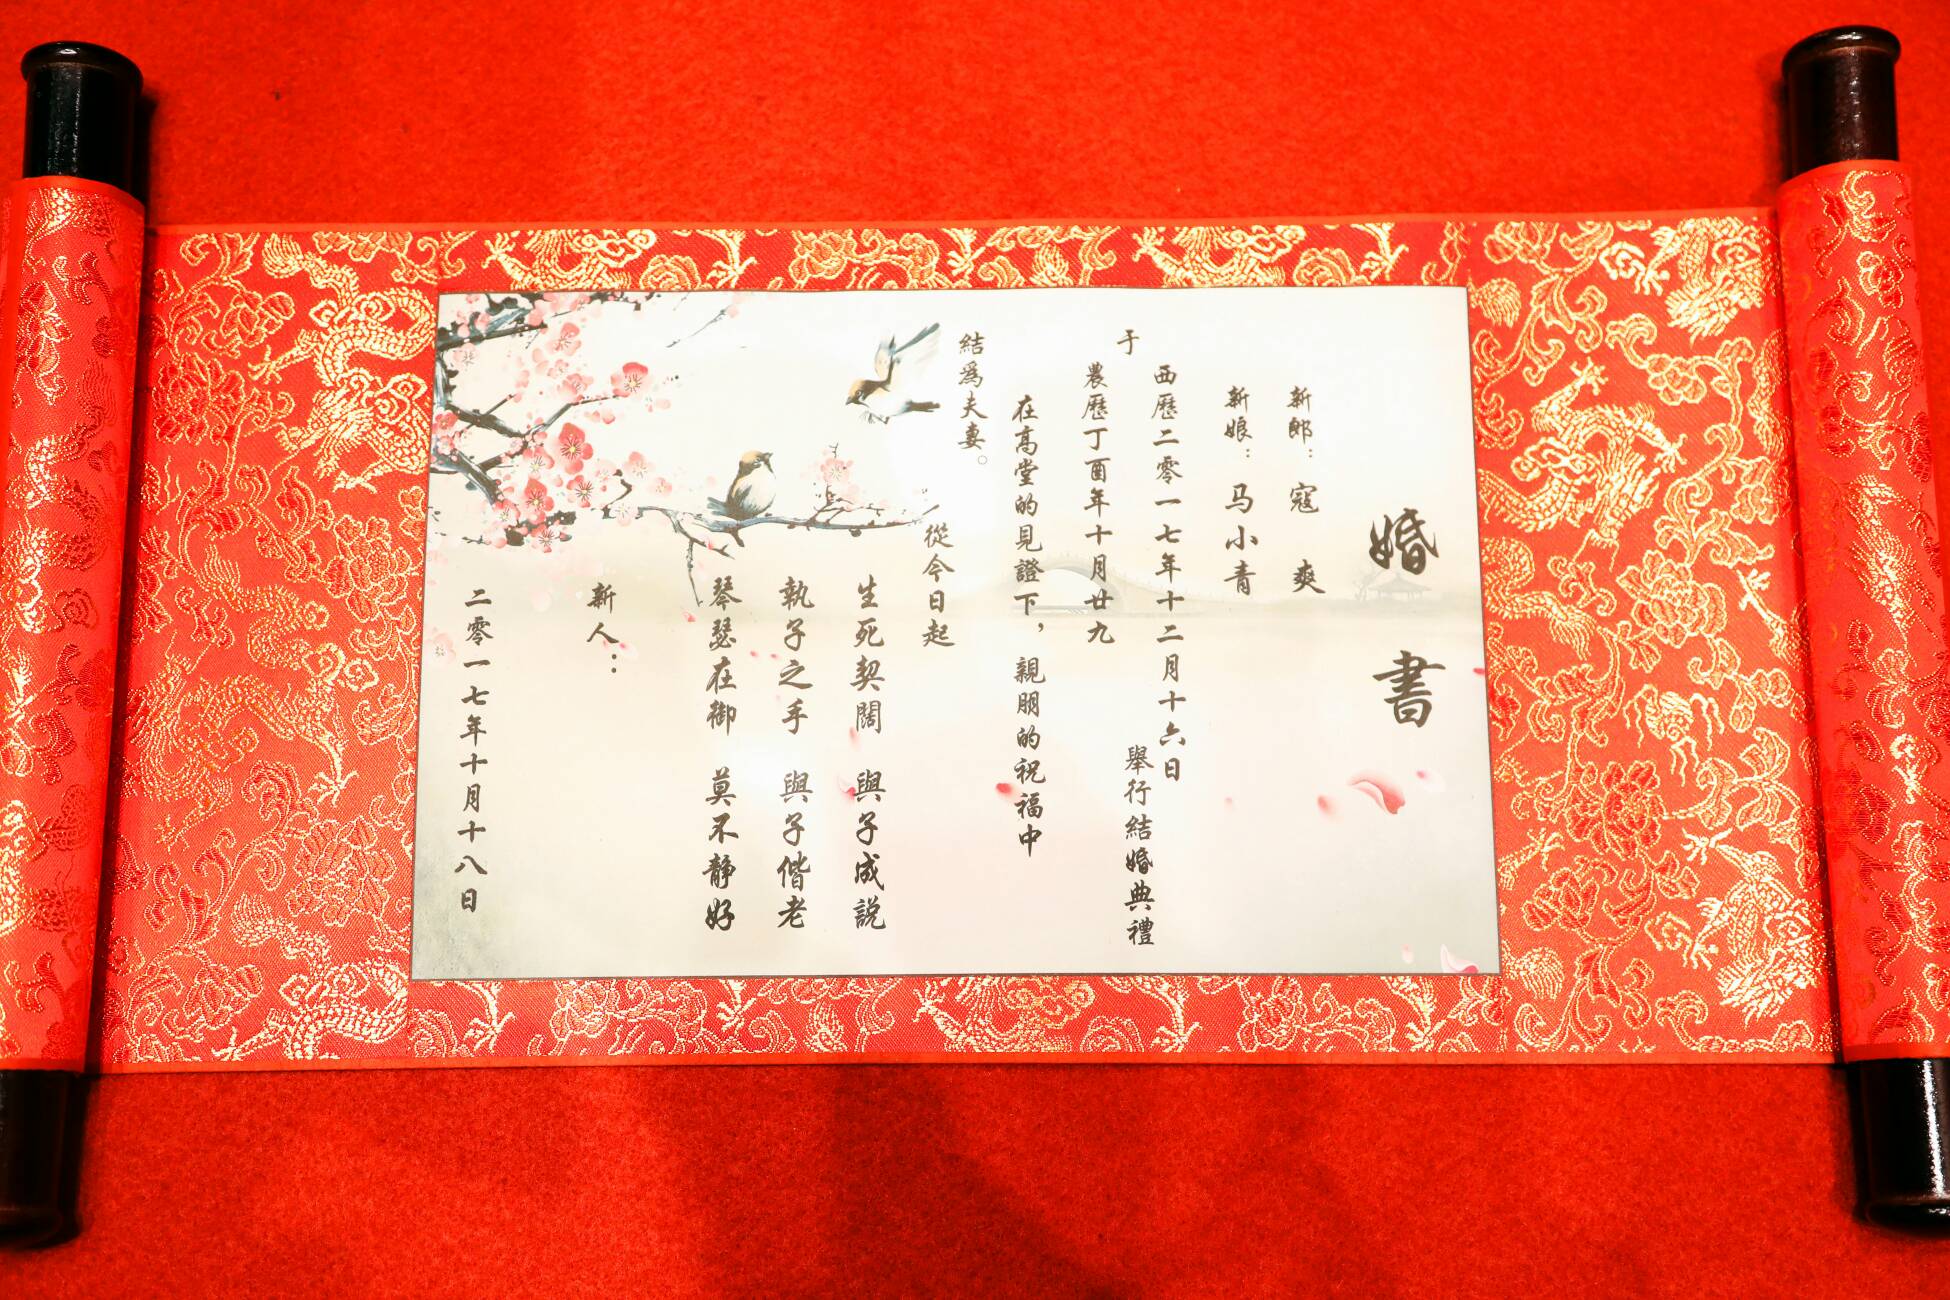 婚書
新郎：寇 爽
新娘：马小青
西歷二零一七年十二月十六日
于
舉行結婚典禮
農歷丁酉年十月廿九
在高堂的見證下，親朋的祝福中
結爲夫妻。
從今日起
生死契闊 與子成説
執子之手 與子偕老
琴瑟在御 莫不静好
新人：
二零一七年十月十八日